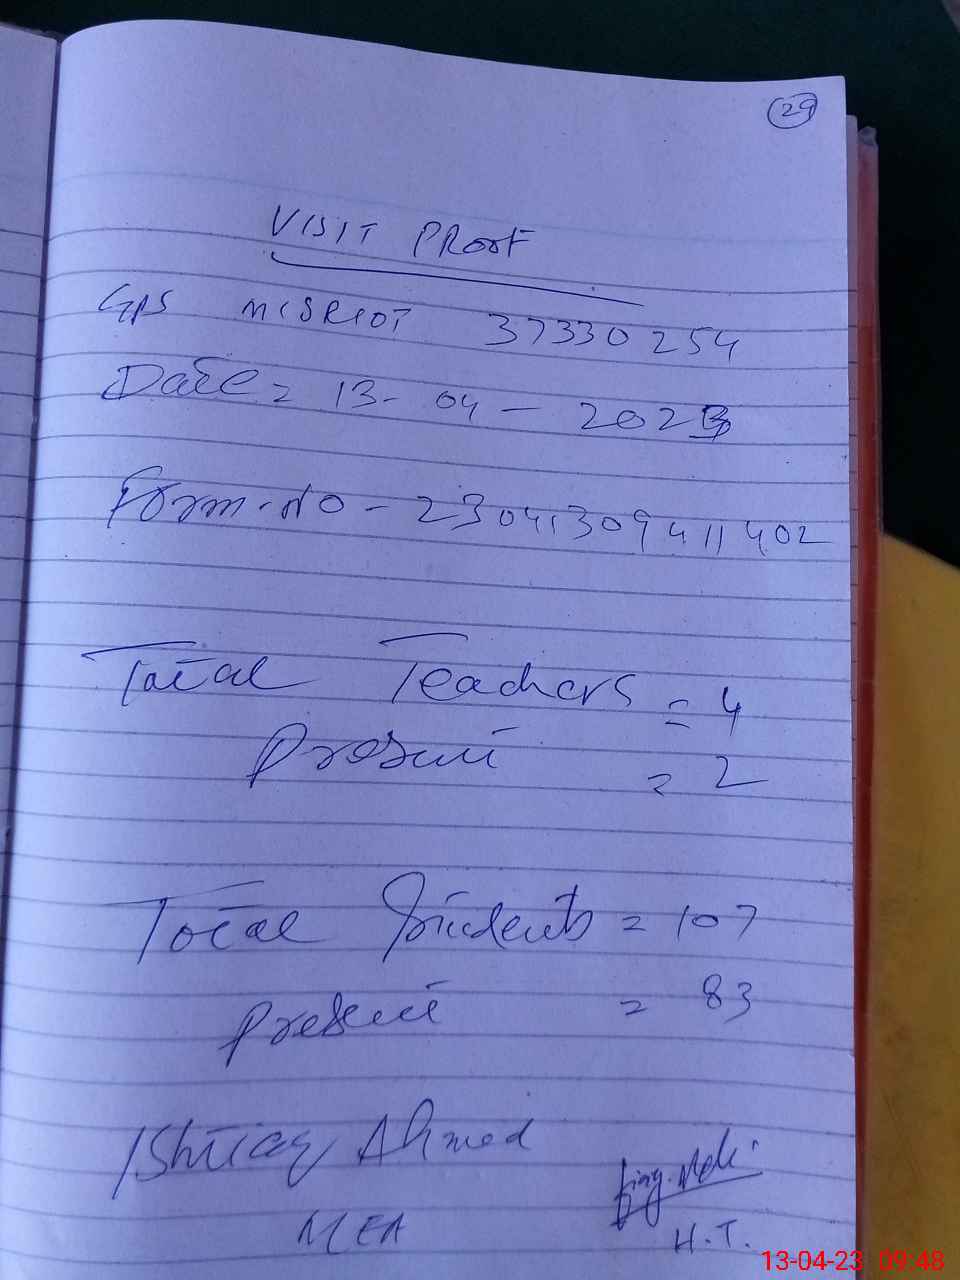 29
VISIT PROOF
GPS MISRIOT 37330254
Date = 13-04-2023
Form.NO - 23041309411402
Total Teachers = 4
Present = 2
Total Students = 107
Present = 83
Ishtiaq Ahmed
MEA
H.T.
13-04-23 09:48